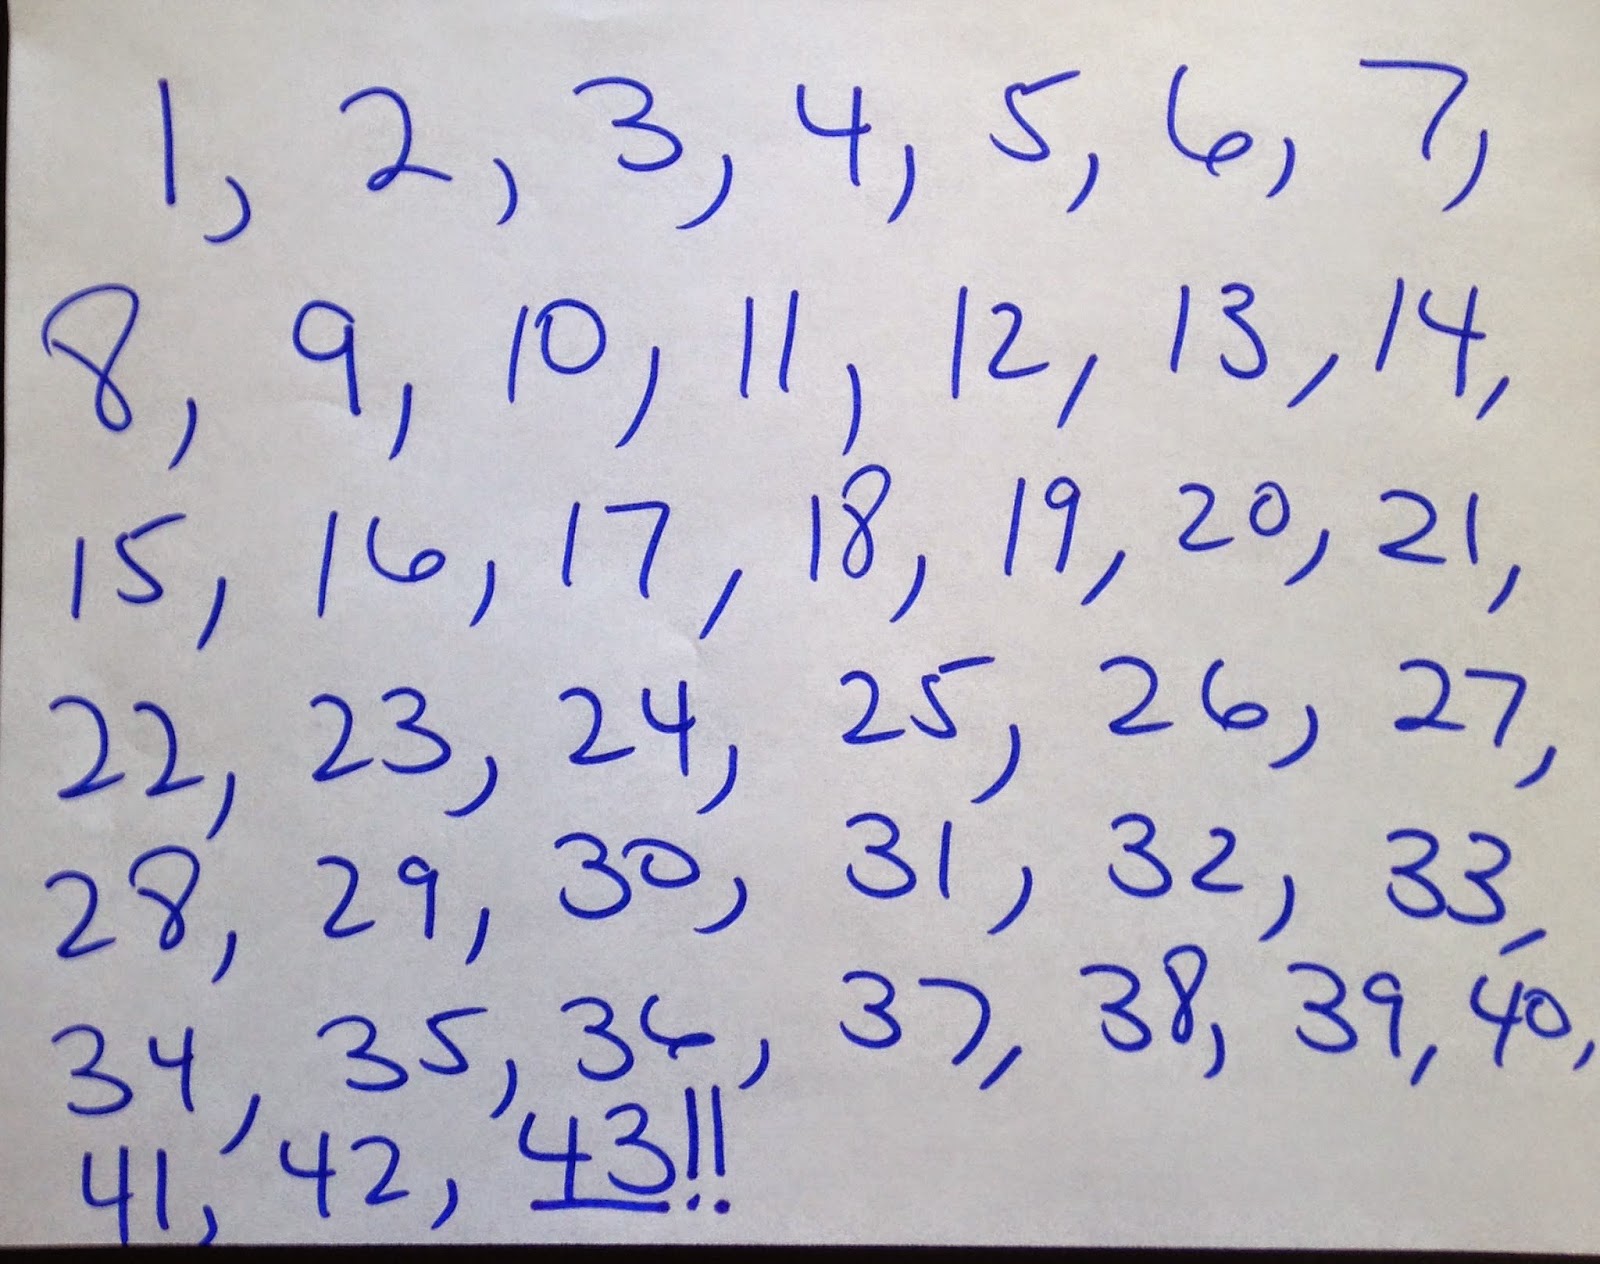 1, 2, 3, 4, 5, 6, 7,
8, 9, 10, 11, 12, 13, 14,
15, 16, 17, 18, 19, 20, 21,
22, 23, 24, 25, 26, 27,
28, 29, 30, 31, 32, 33,
34, 35, 36, 37, 38, 39, 40,
41, 42, 43!!